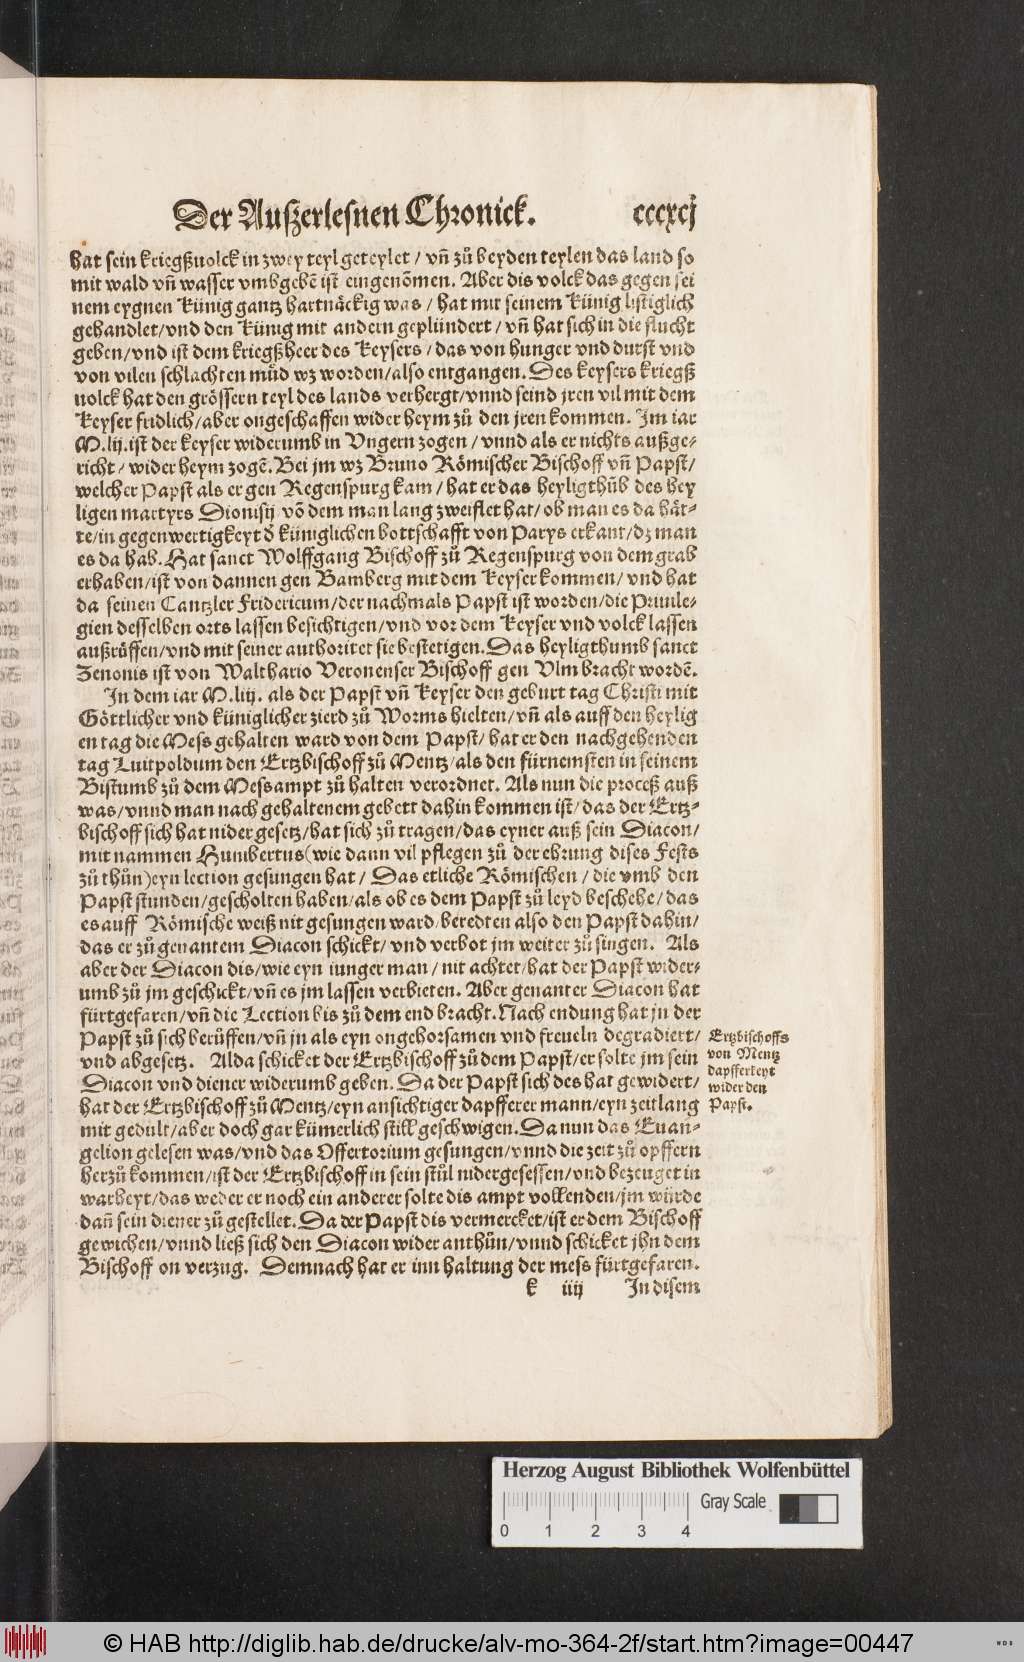 Der Außerlesnen Chronick. cccxcj
hat sein kriegßuolck in zwey teyl geteylet / vñ zů beyden teylen das land so
mit wald vñ wasser vmbgebẽ ist eingenõmen. Aber dis volck das gegen sei
nem eygnen Künig gantz hartnäckig was / hat mit seinem Künig listiglich
gehandlet/vnd den Künig mit andern geplündert / vñ hat sich in die flucht
geben/vnd ist dem kriegßheer des Keysers / das von hunger vnd durst vnd
von vilen schlachten můd wz worden/also entgangen. Des keysers kriegß
uolck hat den grössern teyl des lands verhergt/vnnd seind jren vil mit dem
Keyser fridlich/aber ongeschaffen wider heym zů den jren kommen. Im iar
M.lij.ist der keyser widerumb in Vngern zogen / vnnd als er nichts außge-
richt / wider heym zogẽ. Bei jm wz Bruno Römischer Bischoff vñ Papst/
welcher Papst als er gen Regenspurg kam / hat er das heyligthůb des hey
ligen martyrs Dionisij võ dem man lang zweiflet hat / ob man es da hät-
te/in gegenwertigkeyt d̃ küniglichen bottschafft von Parys erkant/dz man
es da hab. Hat sanct Wolffgang Bischoff zů Regenspurg von dem grab
erhaben/ist von dannen gen Bamberg mit dem Keyser kommen/ vnd hat
da seinen Cantzler Fridericum/der nachmals Papst ist worden/die Priuile-
gien desselben orts lassen besichtigen/vnd vor dem Keyser vnd volck lassen
außrůffen/vnd mit seiner authoritet sie bestetigen. Das heyligthumb sanct
Zenonis ist von Walthario Veronenser Bischoff gen Vlm bracht wordẽ.
In dem iar M.liij. als der Papst vñ Keyser den geburt tag Christi mit
Göttlicher vnd küniglicher zierd zů Worms hielten/vñ als auff den heylig
en tag die Mess gehalten ward von dem Papst/ hat er den nachgehenden
tag Luitpoldum den Ertzbischoff zů Mentz/als den fürnemsten in seinem
Bistumb zů dem Messampt zů halten verordnet. Als nun die proceß auß
was/vnnd man nach gehaltenem gebett dahin kommen ist/das der Ertz-
bischoff sich hat nider gesetz/hat sich zů tragen/das eyner auß sein Diacon/
mit nammen Humbertus(wie dann vil pflegen zů der ehrung dises Fests
zů thůn)eyn lection gesungen hat / Das etliche Römischen / die vmb den
Papst stunden/gescholten haben/als ob es dem Papst zů leyd beschehe/das
es auff Römische weiß nit gesungen ward/beredten also den Papst dahin/
das er zů genantem Diacon schickt/ vnd verbot jm weiter zů singen. Als
aber der Diacon dis/wie eyn iunger man / nit achtet/hat der Papst wider-
umb zů jm geschickt/vñ es jm lassen verbieten. Aber genanter Diacon hat
fürtgefaren/vñ die Lection bis zů dem end bracht. Nach endung hat jn der
Papst zů sich berůffen/vñ jn als eyn ongehorsamen vnd freueln degradiert/
vnd abgesetz. Alda schicket der Ertzbischoff zů dem Papst/er solte jm sein
Diacon vnd diener widerumb geben. Da der Papst sich des hat gewidert/
hat der Ertzbischoff zů Mentz/eyn ansichtiger dapfferer mann/eyn zeitlang
mit gedult/aber doch gar kümerlich still geschwigen. Da nun das Euan-
gelion gelesen was/vnd das Offertorium gesungen/vnnd die zeit zů opffern
herzů kommen/ist der Ertzbischoff in sein stůl nidergesessen/vnd bezeuget in
warheyt/das weder er noch ein anderer solte dis ampt vollenden/jm würde
dañ sein diener zů gestellet. Da der Papst dis vermercket/ist er dem Bischoff
gewichen/vnnd ließ sich den Diacon wider anthůn/vnnd schicket jhn dem
Bischoff on verzug. Demnach hat er inn haltung der mess fürtgefaren.
k iiij In disem
Ertzbischoffs
von Mentz
dapfferkeyt
wider den
Papst.
Herzog August Bibliothek Wolfenbüttel
Gray Scale
0 1 2 3 4
© HAB http://diglib.hab.de/drucke/alv-mo-364-2f/start.htm?image=00447